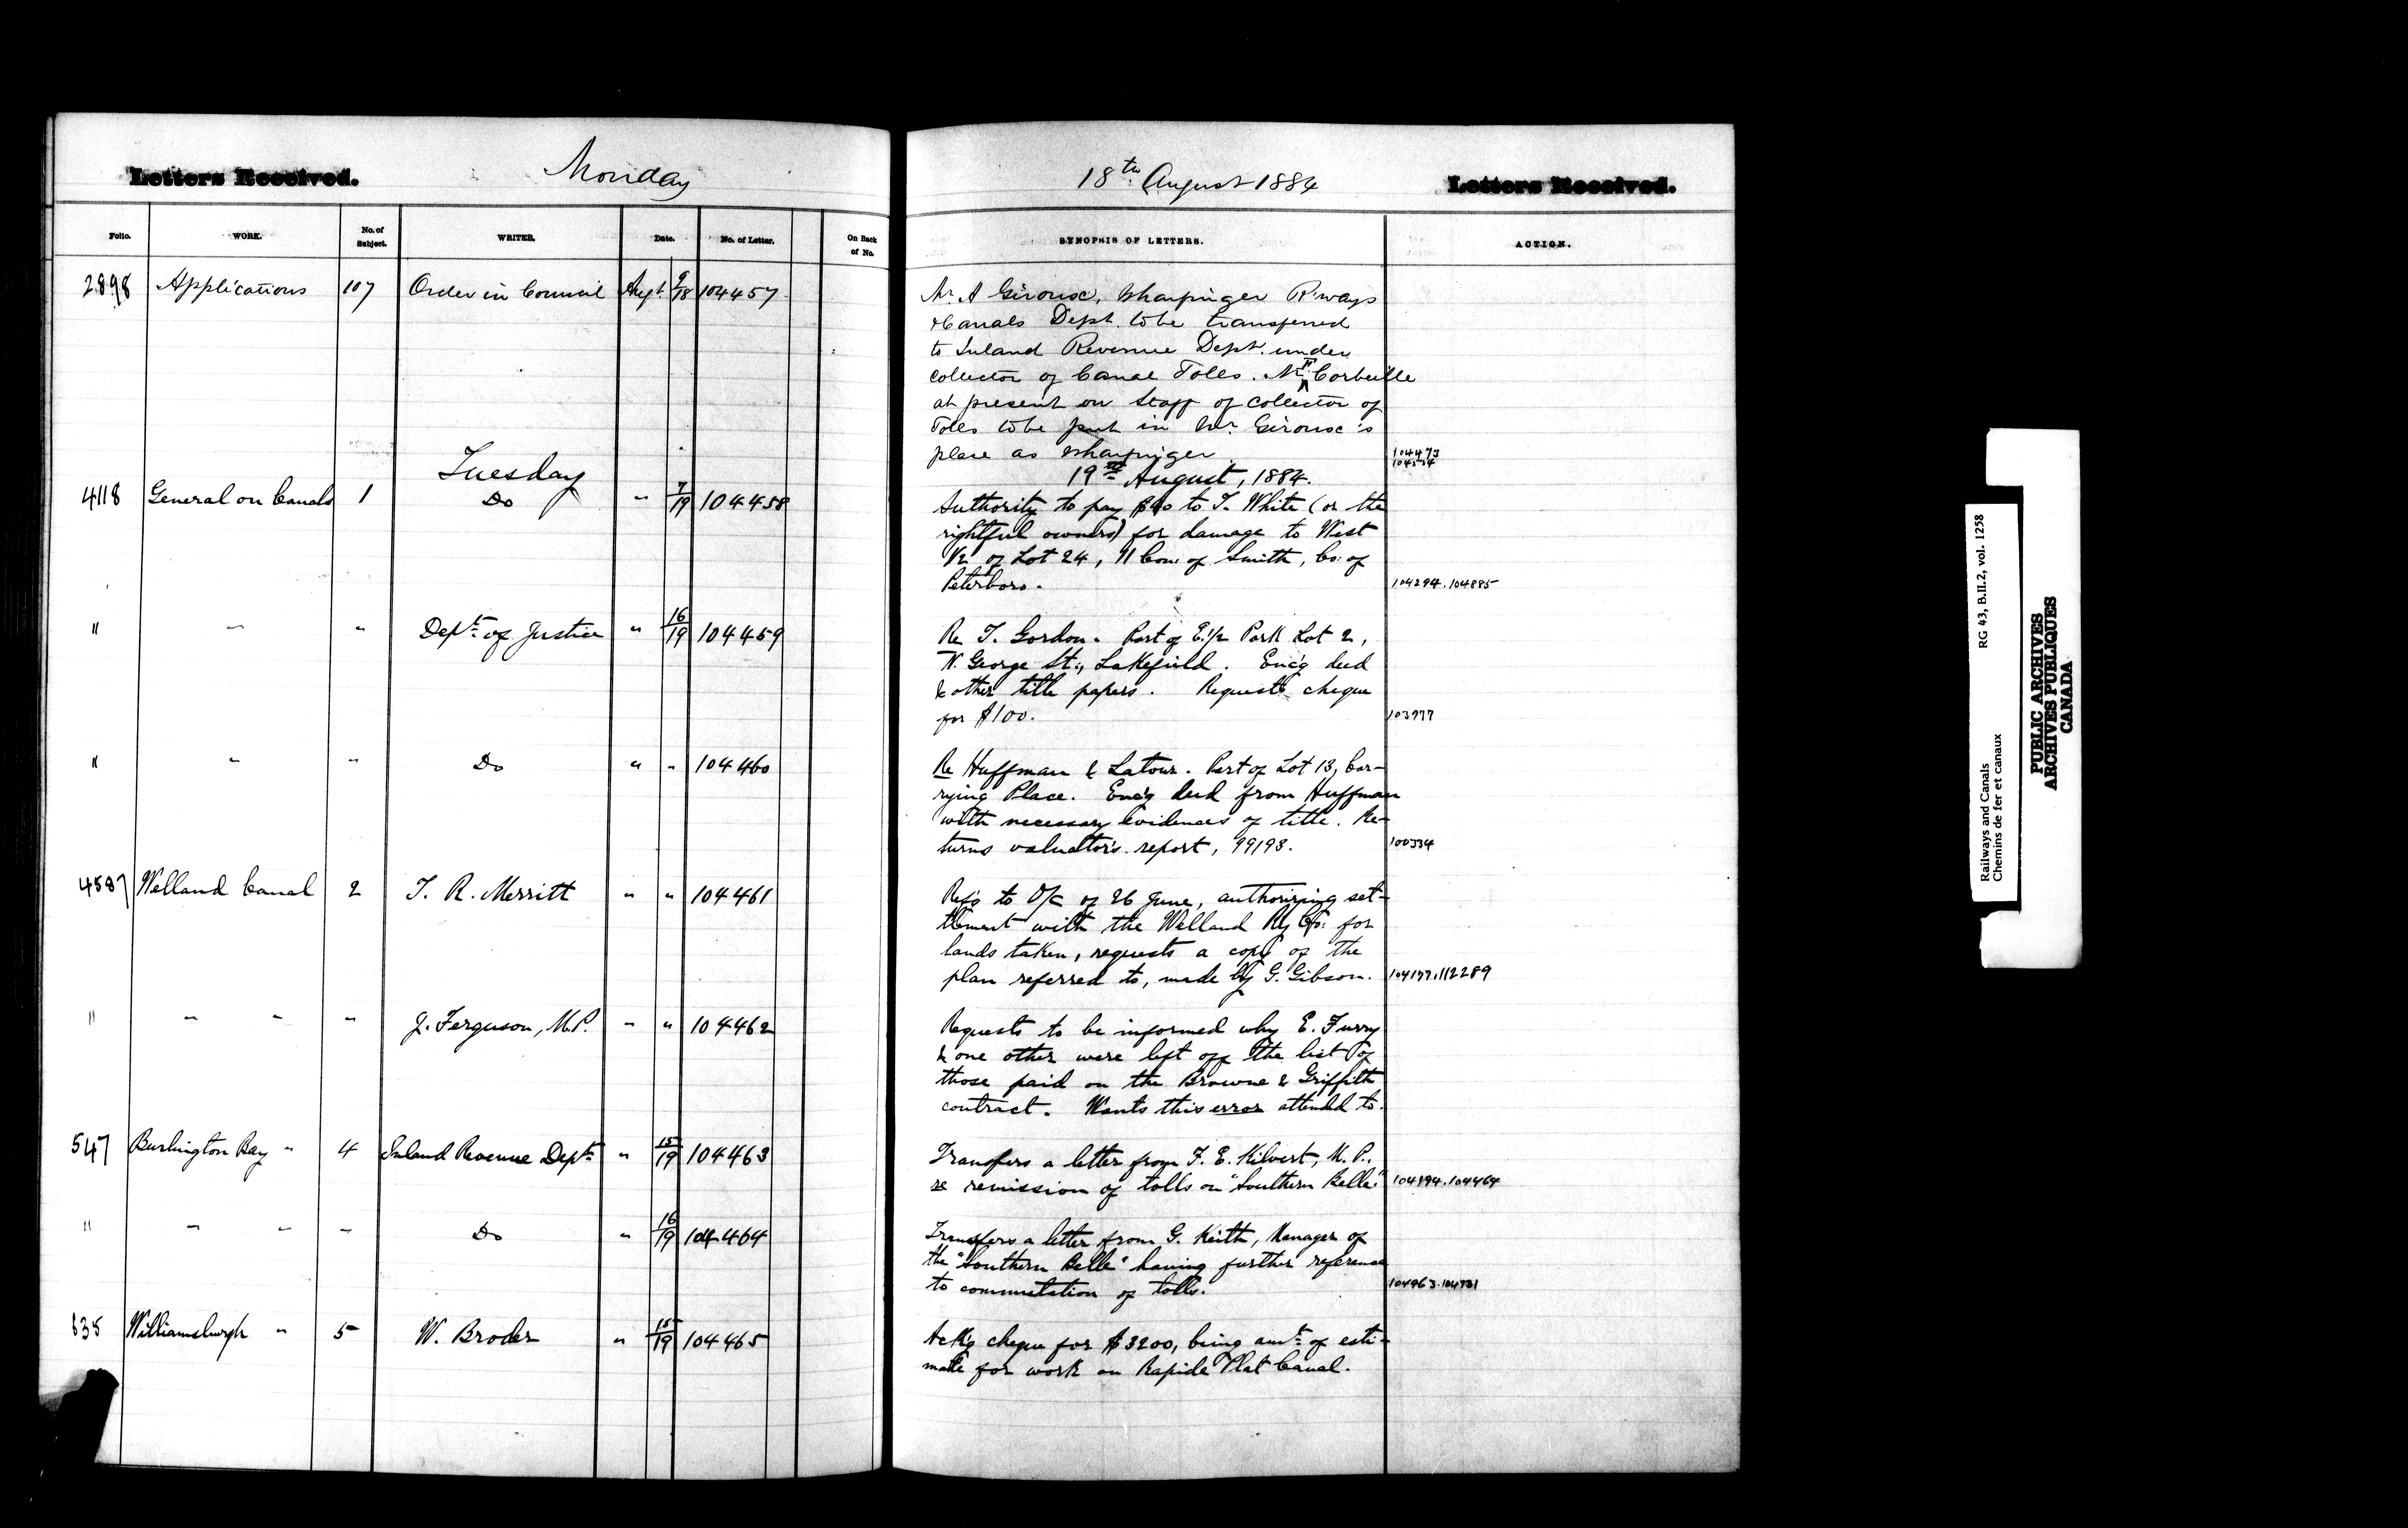 Letters Received.
Monday
18th August 1884
Letters Received.
Folio. WORK. No. of Subject. WRITER. Date. No. of Letter. On Back of No. SYNOPSIS OF LETTERS. ACTION.
2898 Applications 107 Order in Council Augt 9/18 104457
Mr. A Girouse, Wharfinger R'ways
& Canals Dept. to be transferred
to Inland Revenue Dept. under
collector of Canal Tolls. Mr Corbeille
at present on Staff of collector of
Tolls to be put in Mr. Girouse's
place as Wharfinger
104473
Tuesday
19th August, 1884.
4118 General on Canals 1 Do " 7/19 104458
Authority to pay to T. White (or the
rightful owners) for damage to West
1/2 of Lot 24, 11 Con: of Smith, Co: of
Peterboro. 104294. 104885
" " " Dept. of Justice " 16/19 104459
Re T. Gordon. Part of E.1/2 Park Lot 2,
George St., Lakefield. Enc'g deed
& other title papers. Requests cheque
for $100. 103977
" " " Do " " 104460
Re Huffman & Latour. Part of Lot 13, Car-
rying Place. Enc'g deed from Huffman
with necessary evidences of title. Re-
turns valuator's report, 99193. 100334
4587 Welland Canal 2 T. R. Merritt " " 104461
Ref'g to O/C of 26 June, authorizing set-
tlement with the Welland Ry Co: for
lands taken, requests a copy of the
plan referred to, made by G. Gibson. 104177. 112289
" " " " J. Ferguson, M.P. " " 104462
Requests to be informed why E. Furry
& one other were left off the list of
those paid on the Browne & Griffith
contract. Wants this error attended to.
547 Burlington Bay " 4 Inland Revenue Dept. " 15/19 104463
Transfers a letter from F. E. Kilvert, M.P.,
re remission of tolls on "Southern Belle." 104394. 104464
" " " " Do " 16/19 104464
Transfers a letter from G. Keith, Manager of
the "Southern Belle" having further reference
to commutation of tolls. 104463. 104731
635 Williamsburgh " 5 W. Broder " 15/19 104465
Ack'g cheque for $3200, being amt. of esti-
mate for work on Rapide Plat Canal.
Railways and Canals RG 43, B.II.2, vol. 1258
Chemins de fer et canaux
PUBLIC ARCHIVES
ARCHIVES PUBLIQUES
CANADA